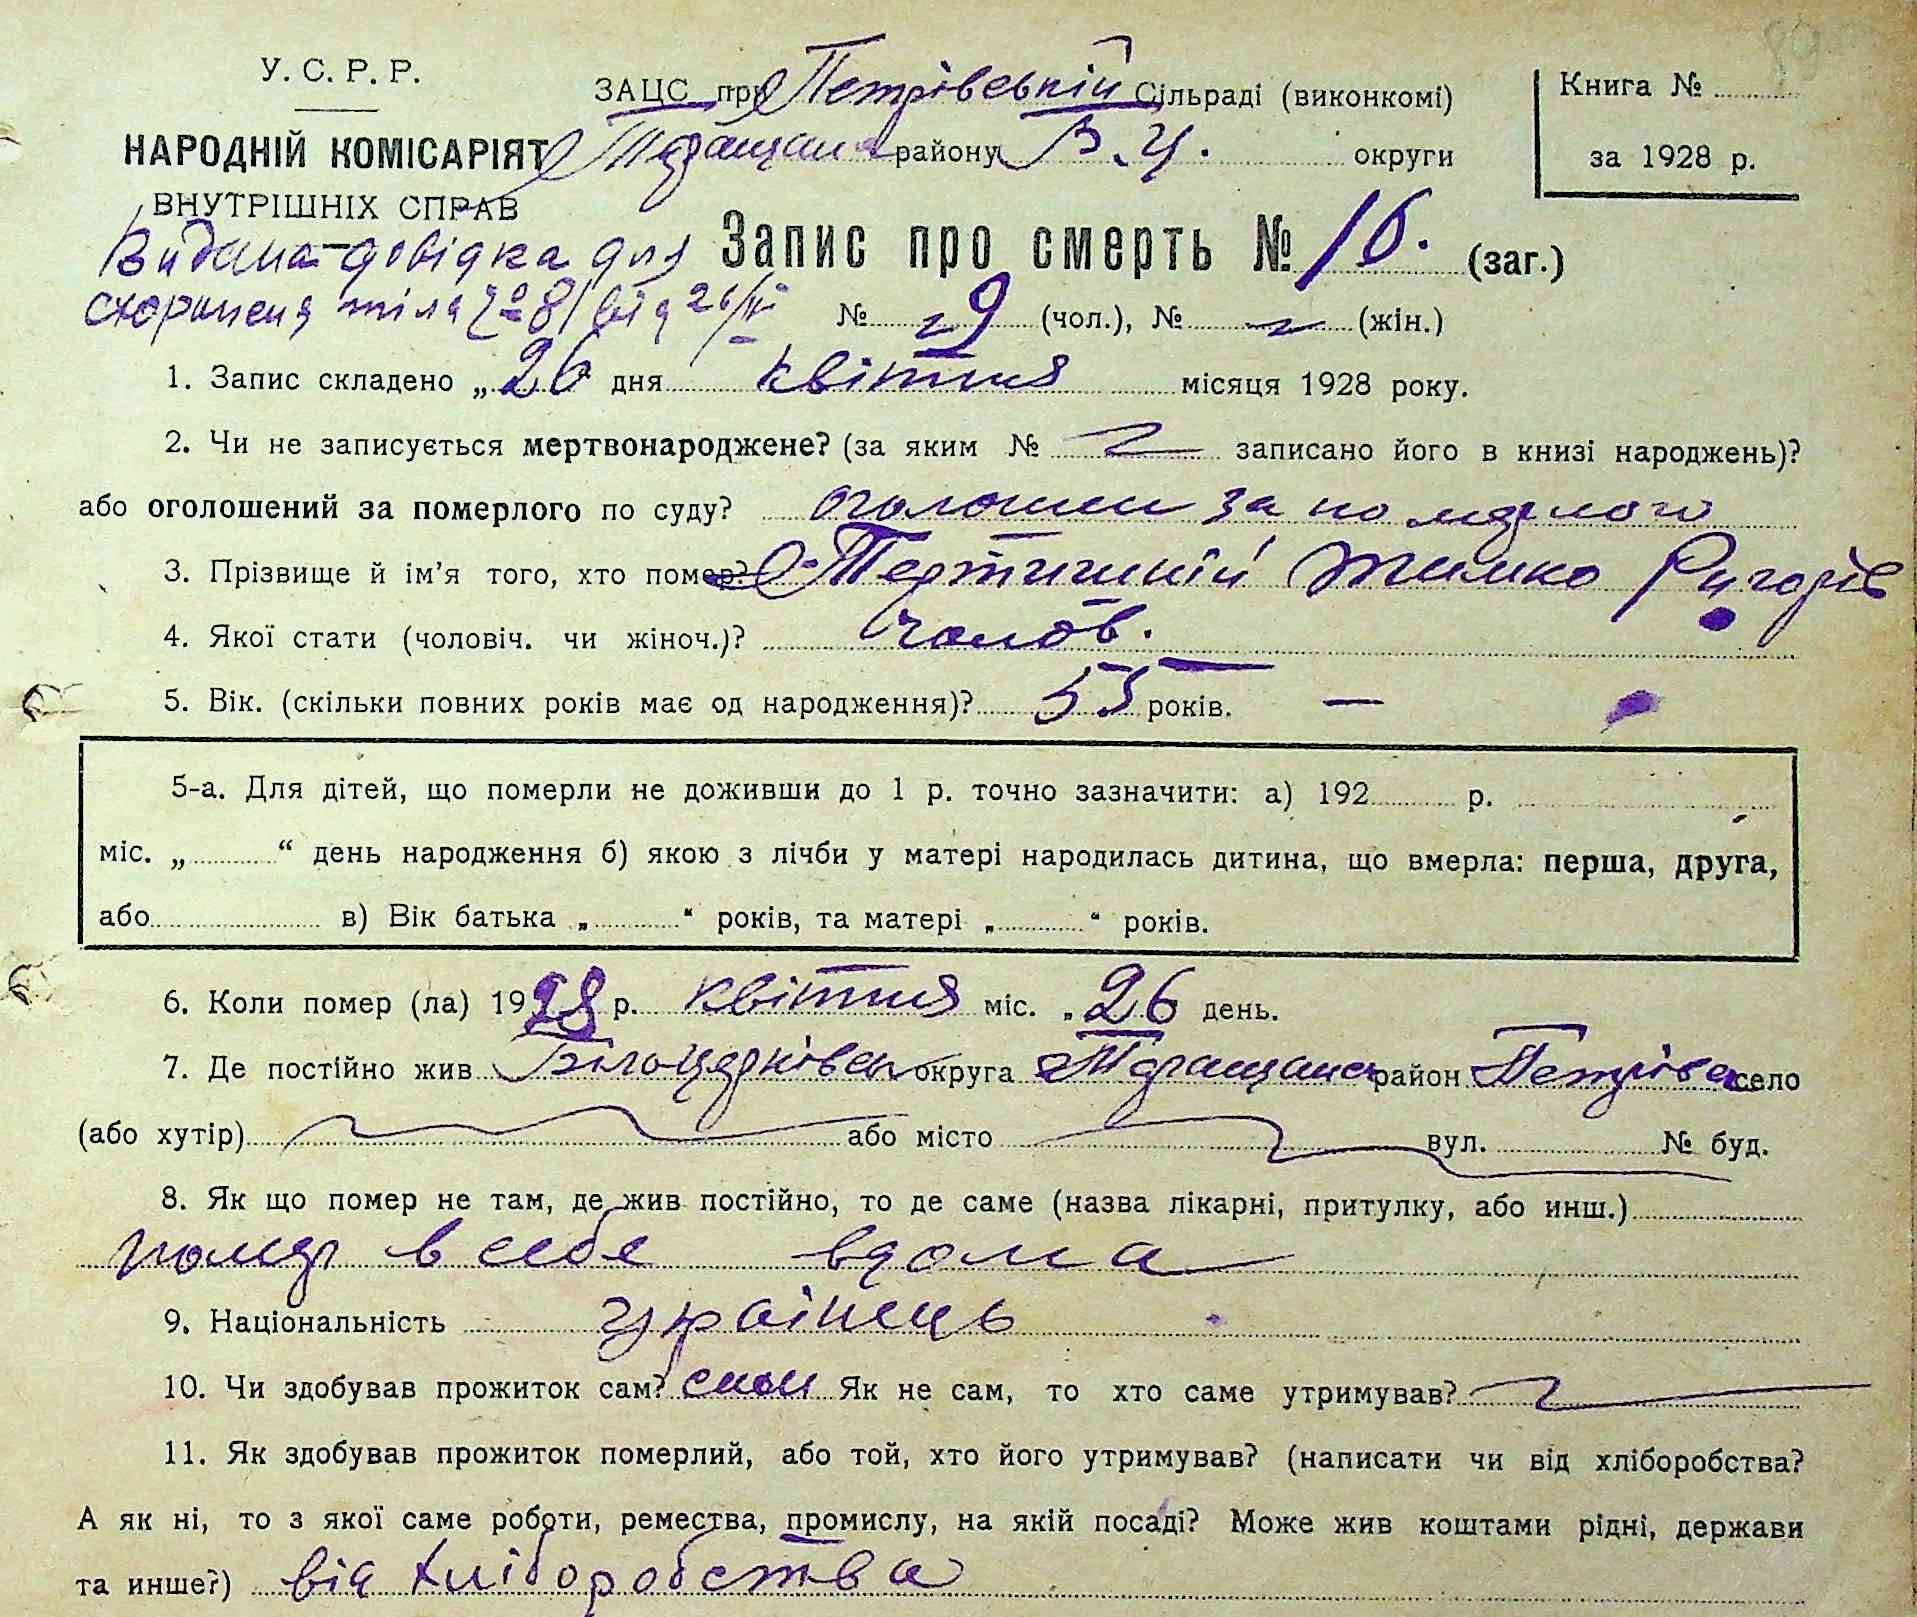 У. С. Р. Р.
НАРОДНІЙ КОМІСАРІЯТ
ВНУТРІШНІХ СПРАВ
ЗАЦС при Петрівській Сільраді (виконкомі)
Таращан району Б.Ц. округи
Книга №
за 1928 р.
Видана довідка для
схоронення тіла № 8 від 26/IV
Запис про смерть № 16. (заг.)
№ 9 (чол.), № (жін.)
1. Запис складено „ 26 " дня квітня місяця 1928 року.
2. Чи не записується мертвонароджене? (за яким № записано його в книзі народжень)?
або оголошений за померлого по суду? оголошен за померлого
3. Прізвище й ім'я того, хто помер? Тертишний Тимко Ригорів
4. Якої стати (чоловіч. чи жіноч.)? чолов.
5. Вік. (скільки повних років має од народження)? 55 років. —
5-а. Для дітей, що померли не доживши до 1 р. точно зазначити: а) 192 р.
міс. „ “ день народження б) якою з лічби у матері народилась дитина, що вмерла: перша, друга,
або в) Вік батька „ “ років, та матері „ “ років.
6. Коли помер (ла) 1928 р. квітня міс. „ 26 день.
7. Де постійно жив Білоцерківськ округа Таращанськ район Петрівка село
(або хутір) або місто вул. № буд.
8. Як що помер не там, де жив постійно, то де саме (назва лікарні, притулку, або инш.)
помер в себе вдома
9. Національність українець
10. Чи здобував прожиток сам? сам Як не сам, то хто саме утримував?
11. Як здобував прожиток померлий, або той, хто його утримував? (написати чи від хліборобства?
А як ні, то з якої саме роботи, ремества, промислу, на якій посаді? Може жив коштами рідні, держави
та инше?) від хліборобства